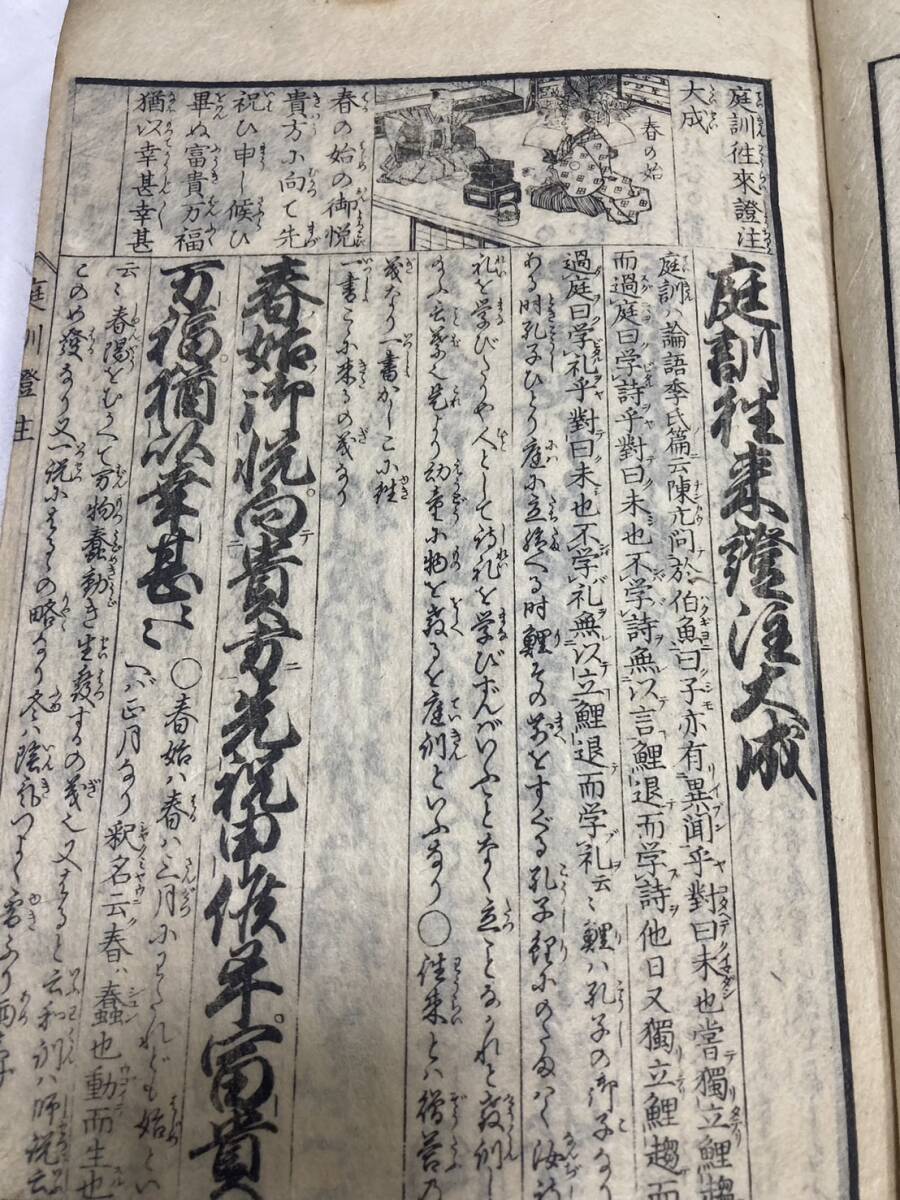 庭訓徃來證注
大成
春の始
春の始の御悦
貴方に向て先
祝ひ申し候ひ
畢ぬ冨貴万福
猶以幸甚幸甚
庭訓徃来證注大成
庭訓ハ論語季氏篇云陳亢問於伯魚曰子亦有異聞乎對曰未也嘗獨立鯉趨
而過庭曰学詩乎對曰未也不学詩無以言鯉退而学詩他日又獨立鯉趨而
過庭曰学礼乎對曰未也不学礼無以立鯉退而学礼云〻鯉ハ孔子の御子なり
ある時孔子ひとり庭に立給へる時鯉その前をすぐる孔子鯉にのたまはく汝詩
礼を学びたりや人として詩礼を学びずんバいふとなく立ことなかれと教訓し
より幼童に物を教るを庭訓といふなり〇徃来とハ
義なり一書かしこに徃
一書こゝに来るの義なり
春始御悦向貴方先祝申候畢冨貴
万福猶以幸甚〻〻
〇春始ハ春ハ三月にわたれども始とい
へバ正月なり釈名云春ハ蠢也動而生也
云〻春陽をむかへて万物蠢動き生發するの義也又はると云和訓ハ師説云
このめ發なり又一説にはるゝの略なり冬ハ陰氣つよく雪ふり雨
庭訓證注